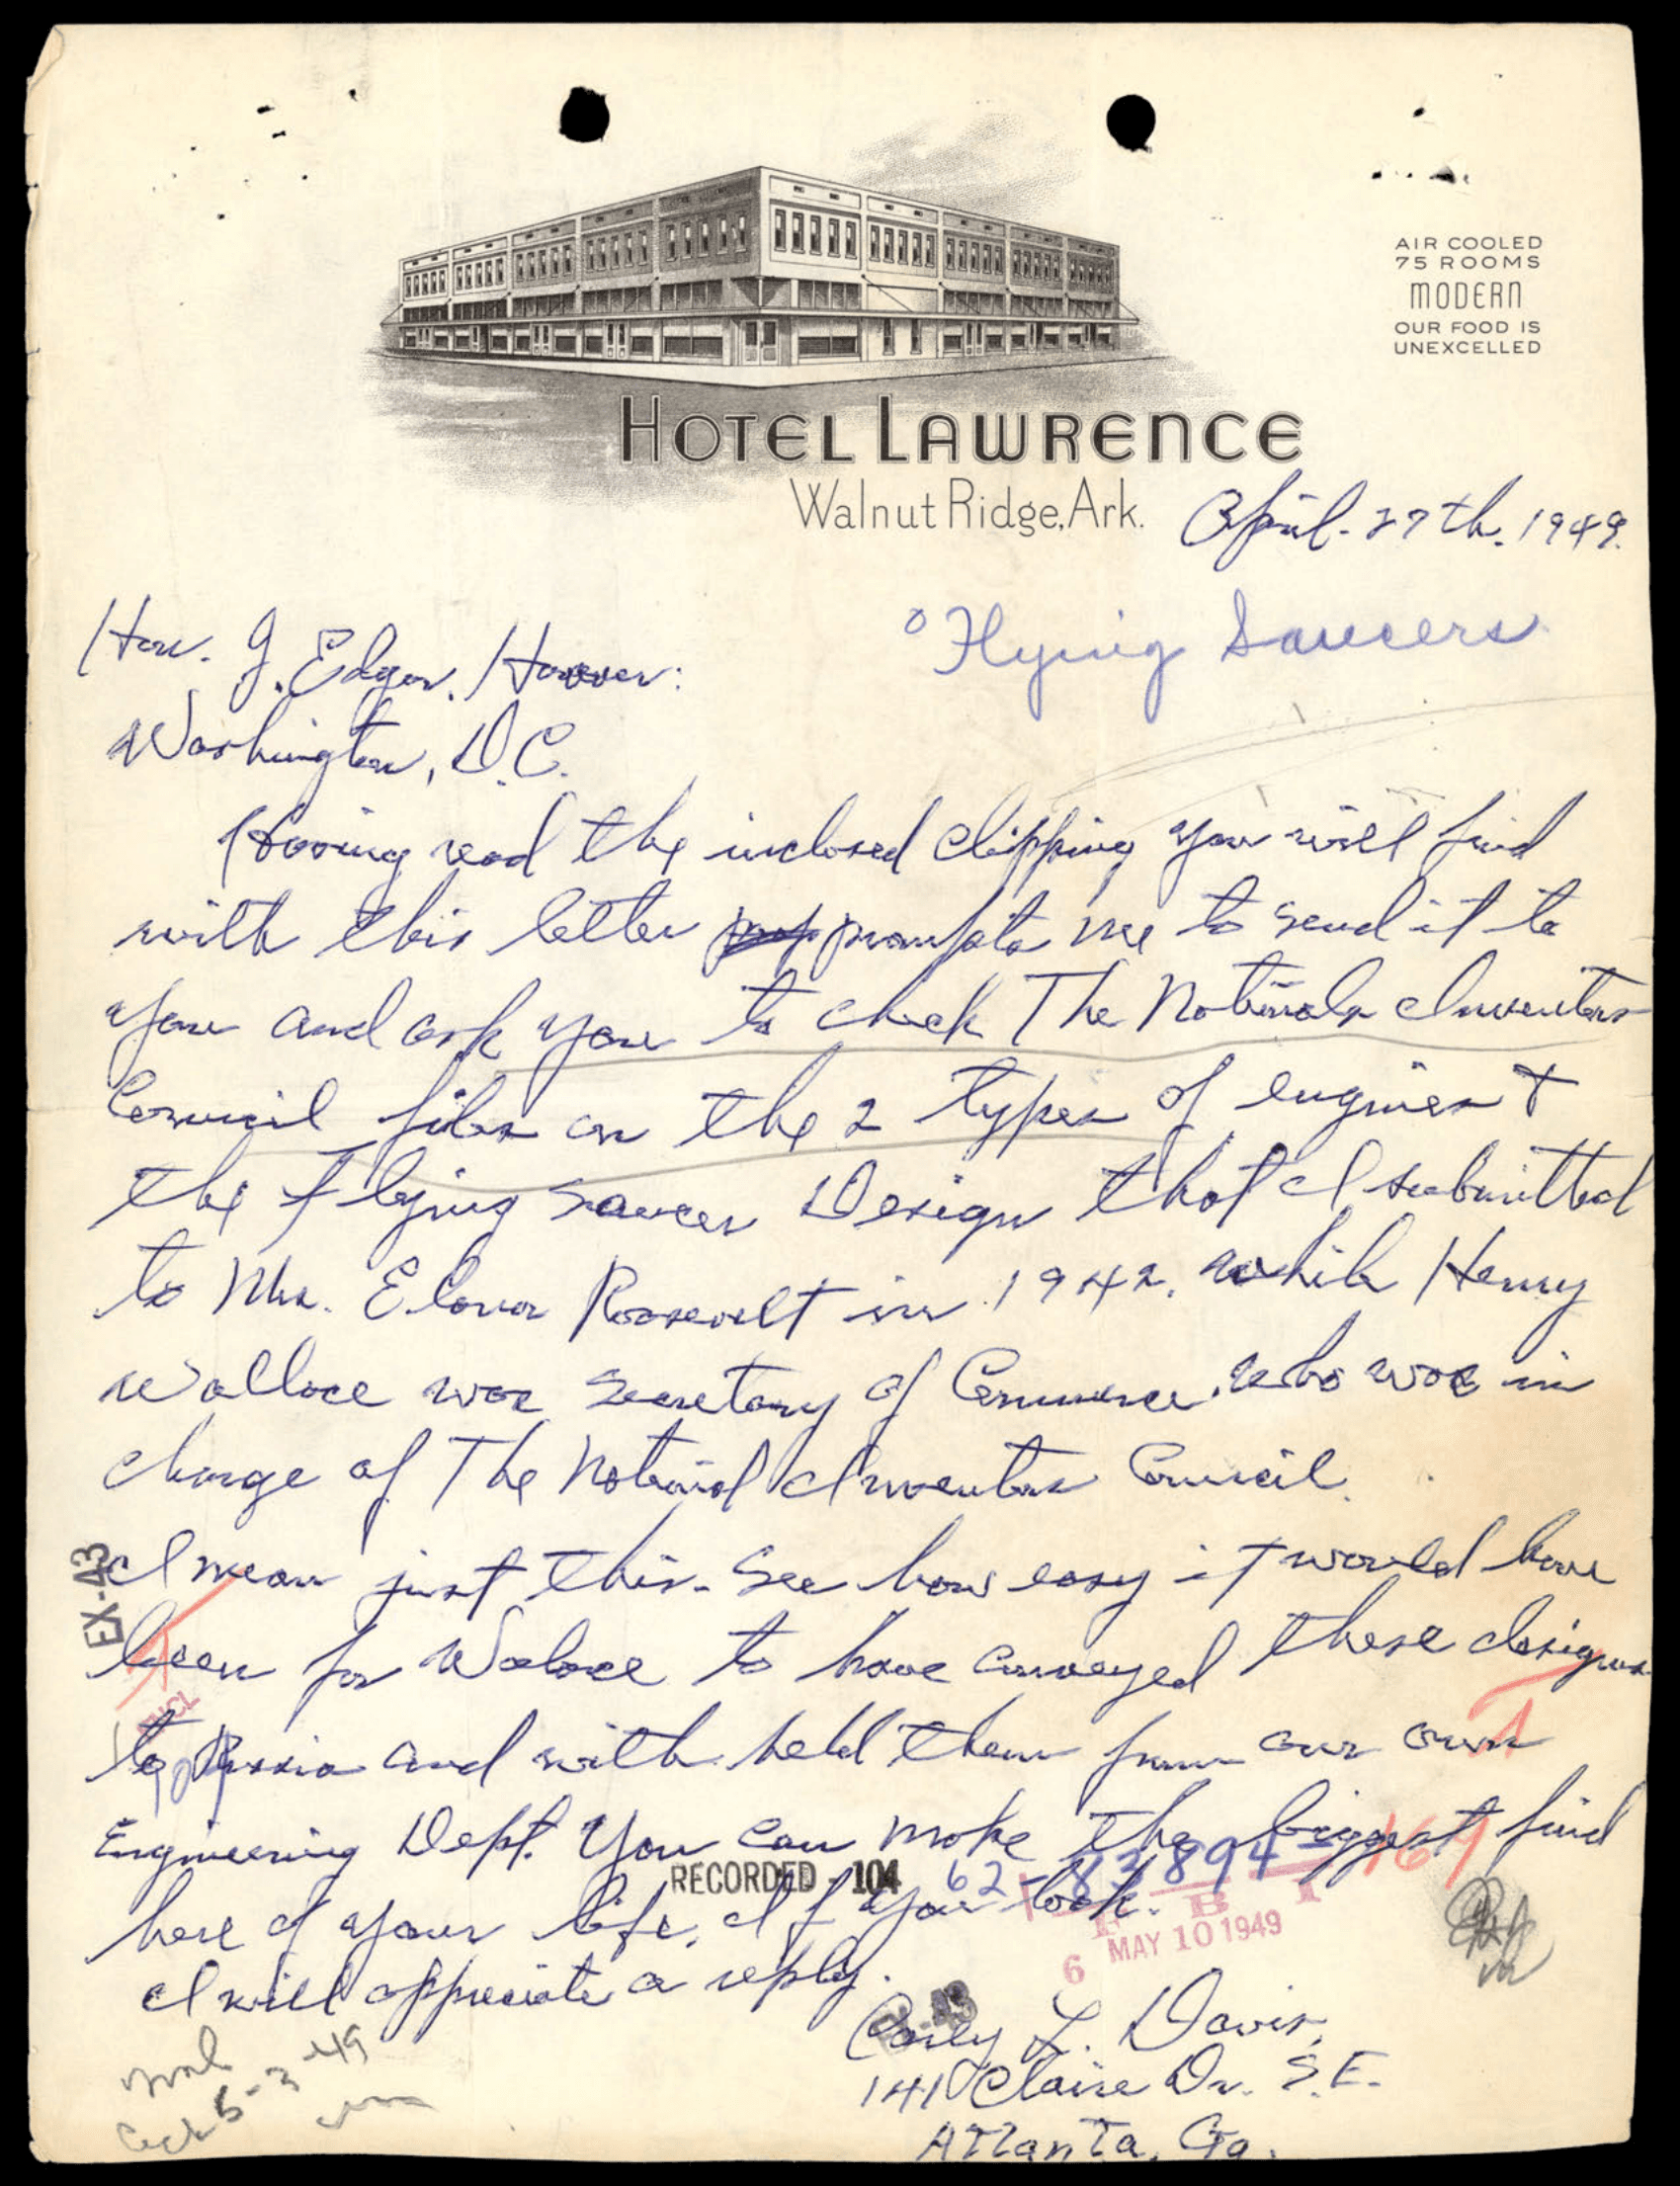 AIR COOLED
75 ROOMS
MODERN
OUR FOOD IS
UNEXCELLED
HOTEL LAWRENCE
Walnut Ridge, Ark.
April. 27th. 1949.
Flying Saucers
Hon. J. Edgar. Hoover:
Washington, D.C.
Having read the inclosed clipping you will find
with this letter prompts me to send it to
you and ask you to check The National Inventors
Council files on the 2 types of engines +
the flying saucer Design that I submitted
to Mrs. Elonor Roosevelt in 1942. while Henry
Wallace was Secretary of Commerce. who was in
charge of The National Inventors Council.
I mean just this - See how easy it would have
been for Walace to have conveyed these designs
to Russia and with held them from our own
Engineering Dept. You can make the biggest find
here of your life, If you look.
I will appreciate a reply.
Carly L. Davis,
141 Claire Dr. S.E.
Atlanta, Ga.
EX-43
RECORDED - 104
62-83894-169
F B I
6 MAY 10 1949
EX-43
ack 5-3-49